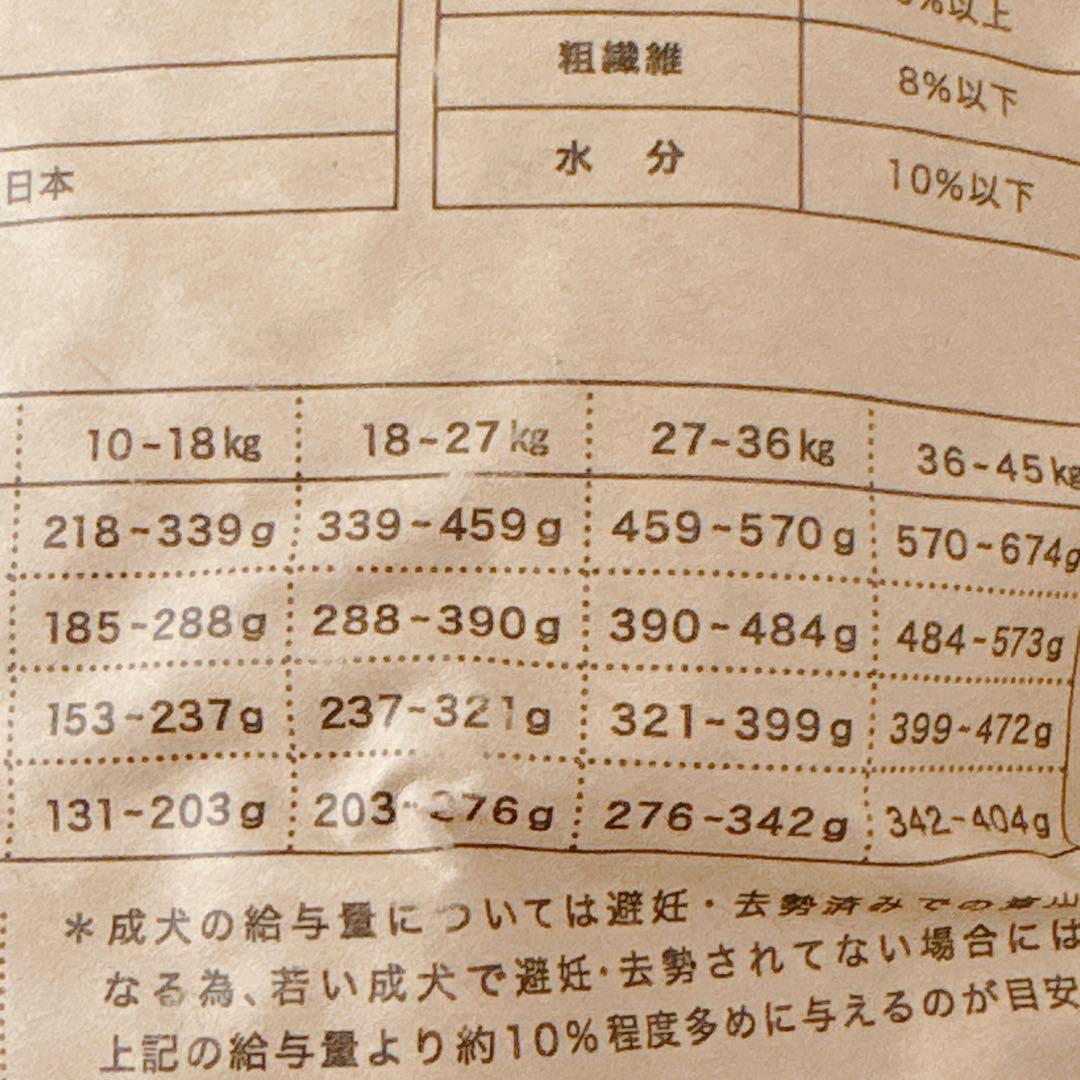 %以上
粗繊維 8%以下
日本 水 分 10%以下
10~18kg 18~27kg 27~36kg 36~45kg
218~339g 339~459g 459~570g 570~674g
185~288g 288~390g 390~484g 484~573g
153~237g 237~321g 321~399g 399~472g
131~203g 203~276g 276~342g 342~404g
*成犬の給与量については避妊・去勢済みでの
なる為、若い成犬で避妊・去勢されてない場合には
上記の給与量より約10%程度多めに与えるのが目安